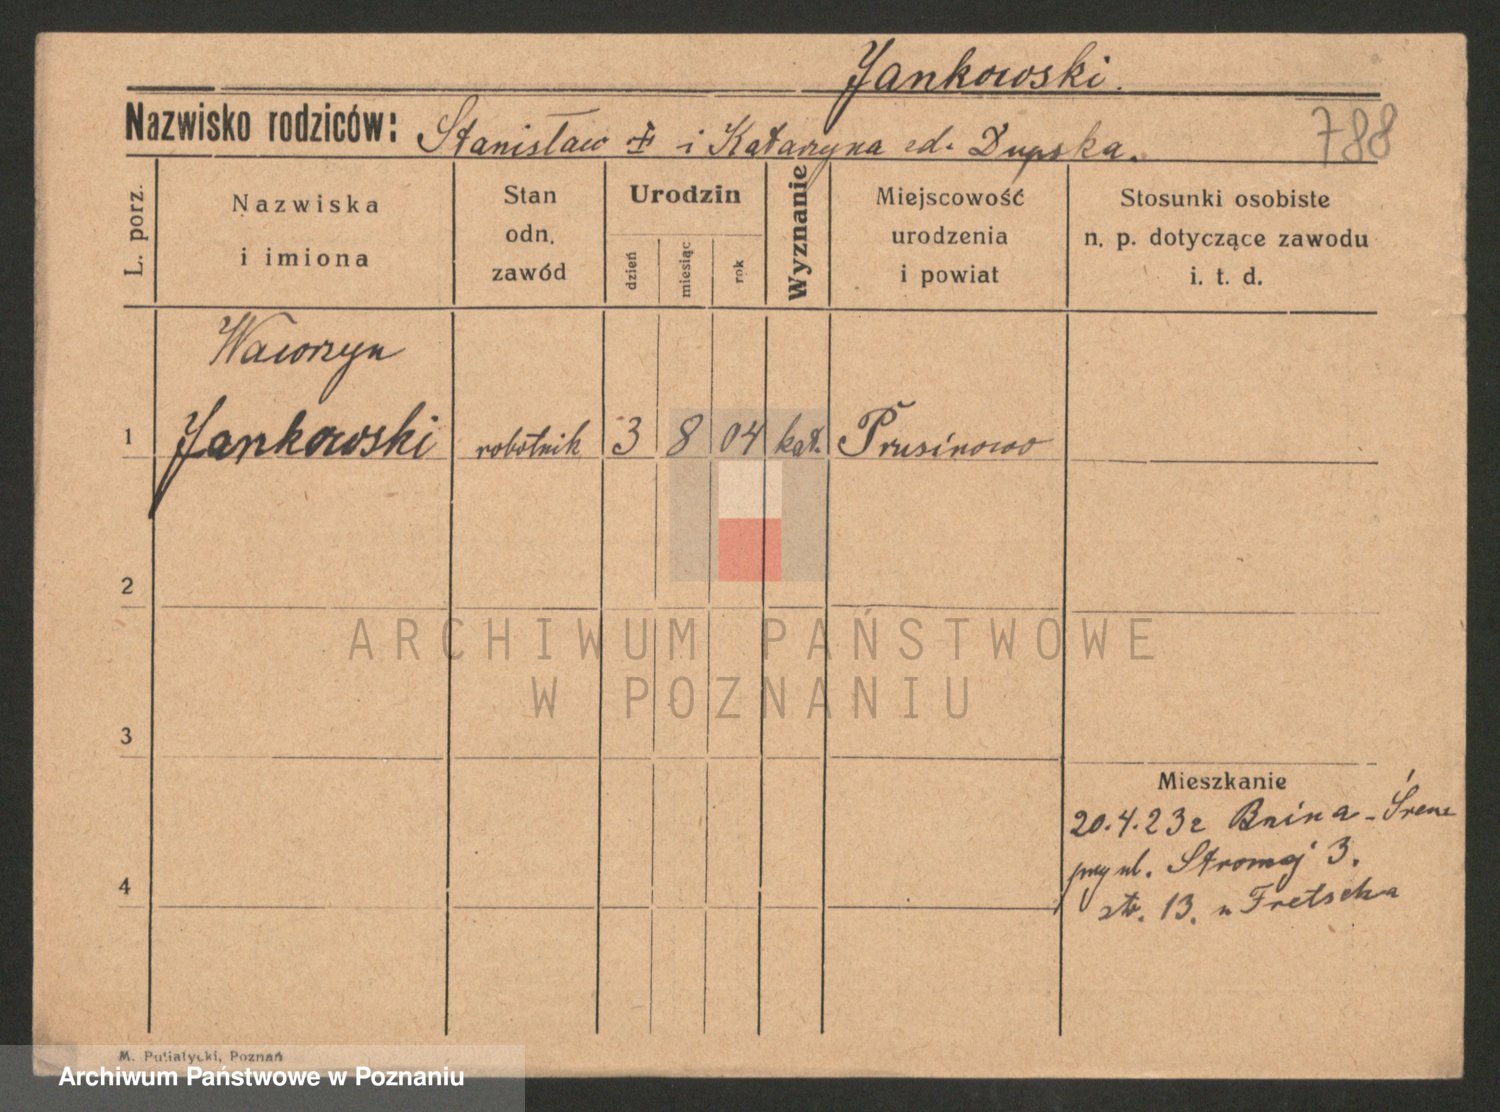 Jankowski.
Nazwisko rodziców: Stanisław i Katarzyna zd. Dupska.
788
L. porz.
Nazwiska
i imiona
Stan
odn.
zawód
Urodzin
dzień
miesiąc
rok
Wyznanie
Miejscowość
urodzenia
i powiat
Stosunki osobiste
n. p. dotyczące zawodu
i. t. d.
Wawrzyn
1 Jankowski robotnik 3 8 04 kat. Prusinowo
2
3
4
Mieszkanie
20.4.23 z Bnina - Śrem
przy ul. Stromej 3.
13. u Fretschka
M. Putiatycki, Poznań
ARCHIWUM PAŃSTWOWE
W POZNANIU
Archiwum Państwowe w Poznaniu